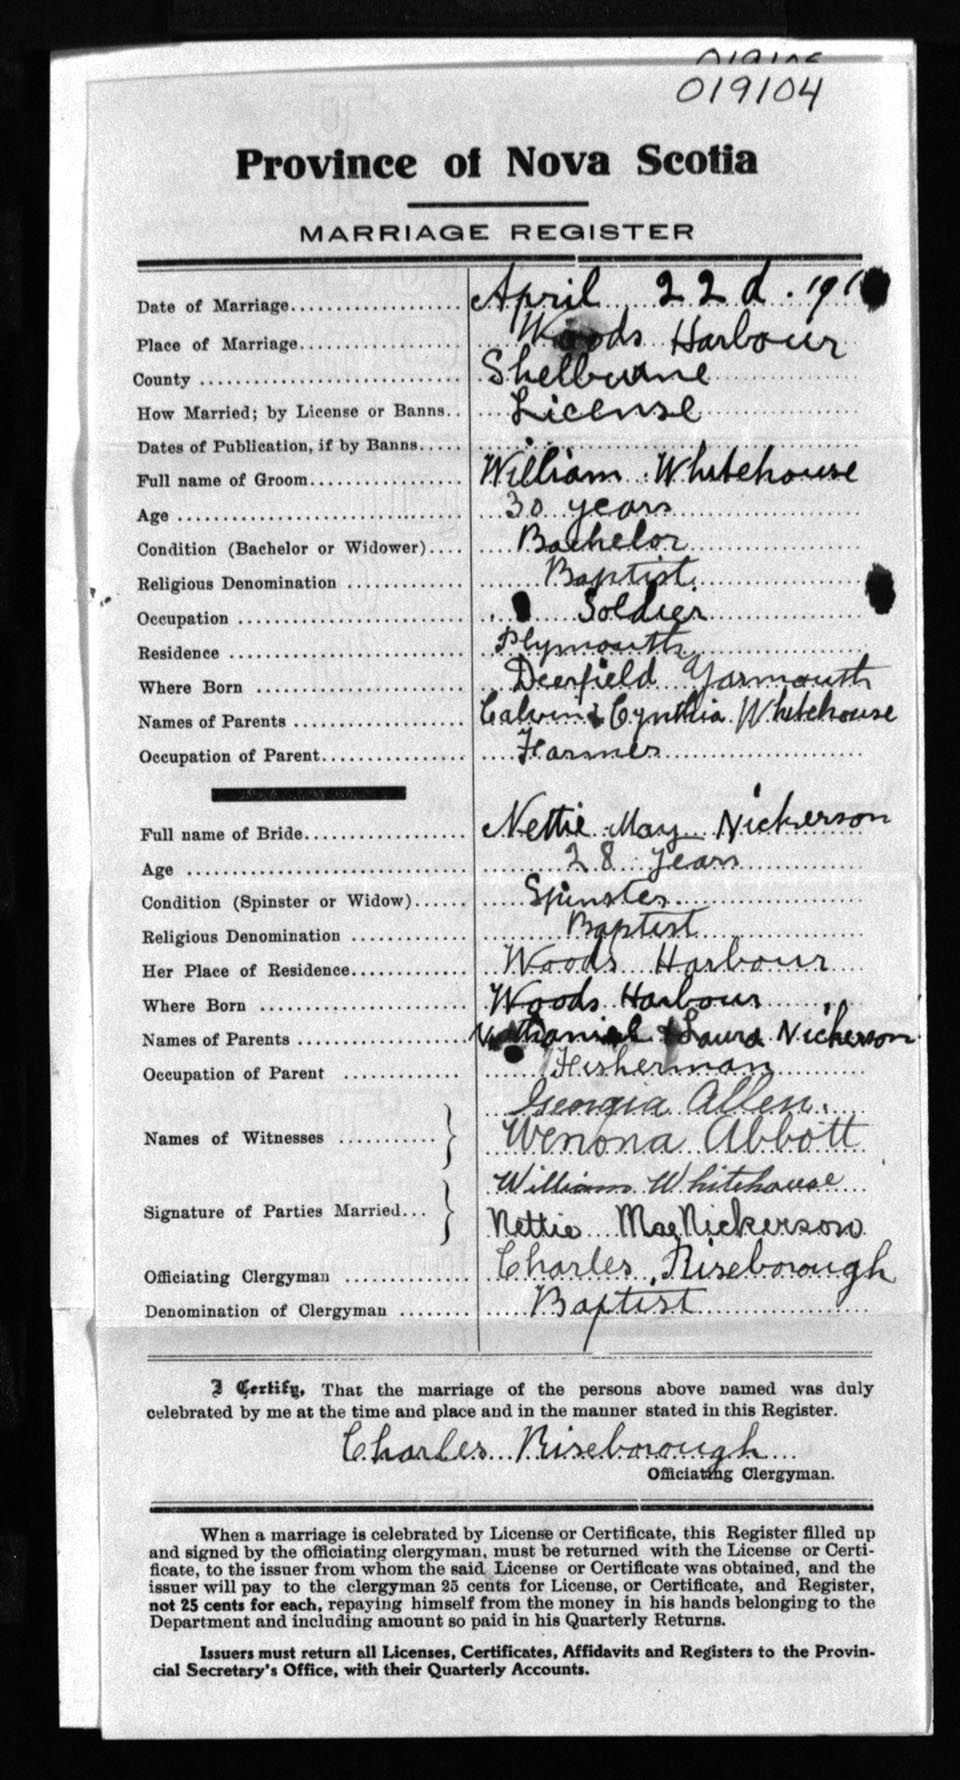 019104
Province of Nova Scotia
MARRIAGE REGISTER
Date of Marriage April 22d. 191
Place of Marriage Woods Harbour
County Shelburne
How Married; by License or Banns License
Dates of Publication, if by Banns
Full name of Groom William Whitehouse
Age 30 years
Condition (Bachelor or Widower) Bachelor
Religious Denomination Baptist
Occupation Soldier
Residence Plymouth
Where Born Deerfield Yarmouth
Names of Parents Calvin & Cynthia Whitehouse
Occupation of Parent Farmer
Full name of Bride Nettie May Nickerson
Age 28 years
Condition (Spinster or Widow) Spinster
Religious Denomination Baptist
Her Place of Residence Woods Harbour
Where Born Woods Harbour
Names of Parents Nathaniel & Laura Nickerson
Occupation of Parent Fisherman
Names of Witnesses Georgia Allen.
Wenona Abbott
Signature of Parties Married William Whitehouse
Nettie Mae Nickerson
Officiating Clergyman Charles Riseborough
Denomination of Clergyman Baptist
I Certify, That the marriage of the persons above named was duly
celebrated by me at the time and place and in the manner stated in this Register.
Charles Riseborough
Officiating Clergyman.
When a marriage is celebrated by License or Certificate, this Register filled up
and signed by the officiating clergyman, must be returned with the License or Certi-
ficate, to the issuer from whom the said License or Certificate was obtained, and the
issuer will pay to the clergyman 25 cents for License, or Certificate, and Register,
not 25 cents for each, repaying himself from the money in his hands belonging to the
Department and including amount so paid in his Quarterly Returns.
Issuers must return all Licenses, Certificates, Affidavits and Registers to the Provin-
cial Secretary's Office, with their Quarterly Accounts.